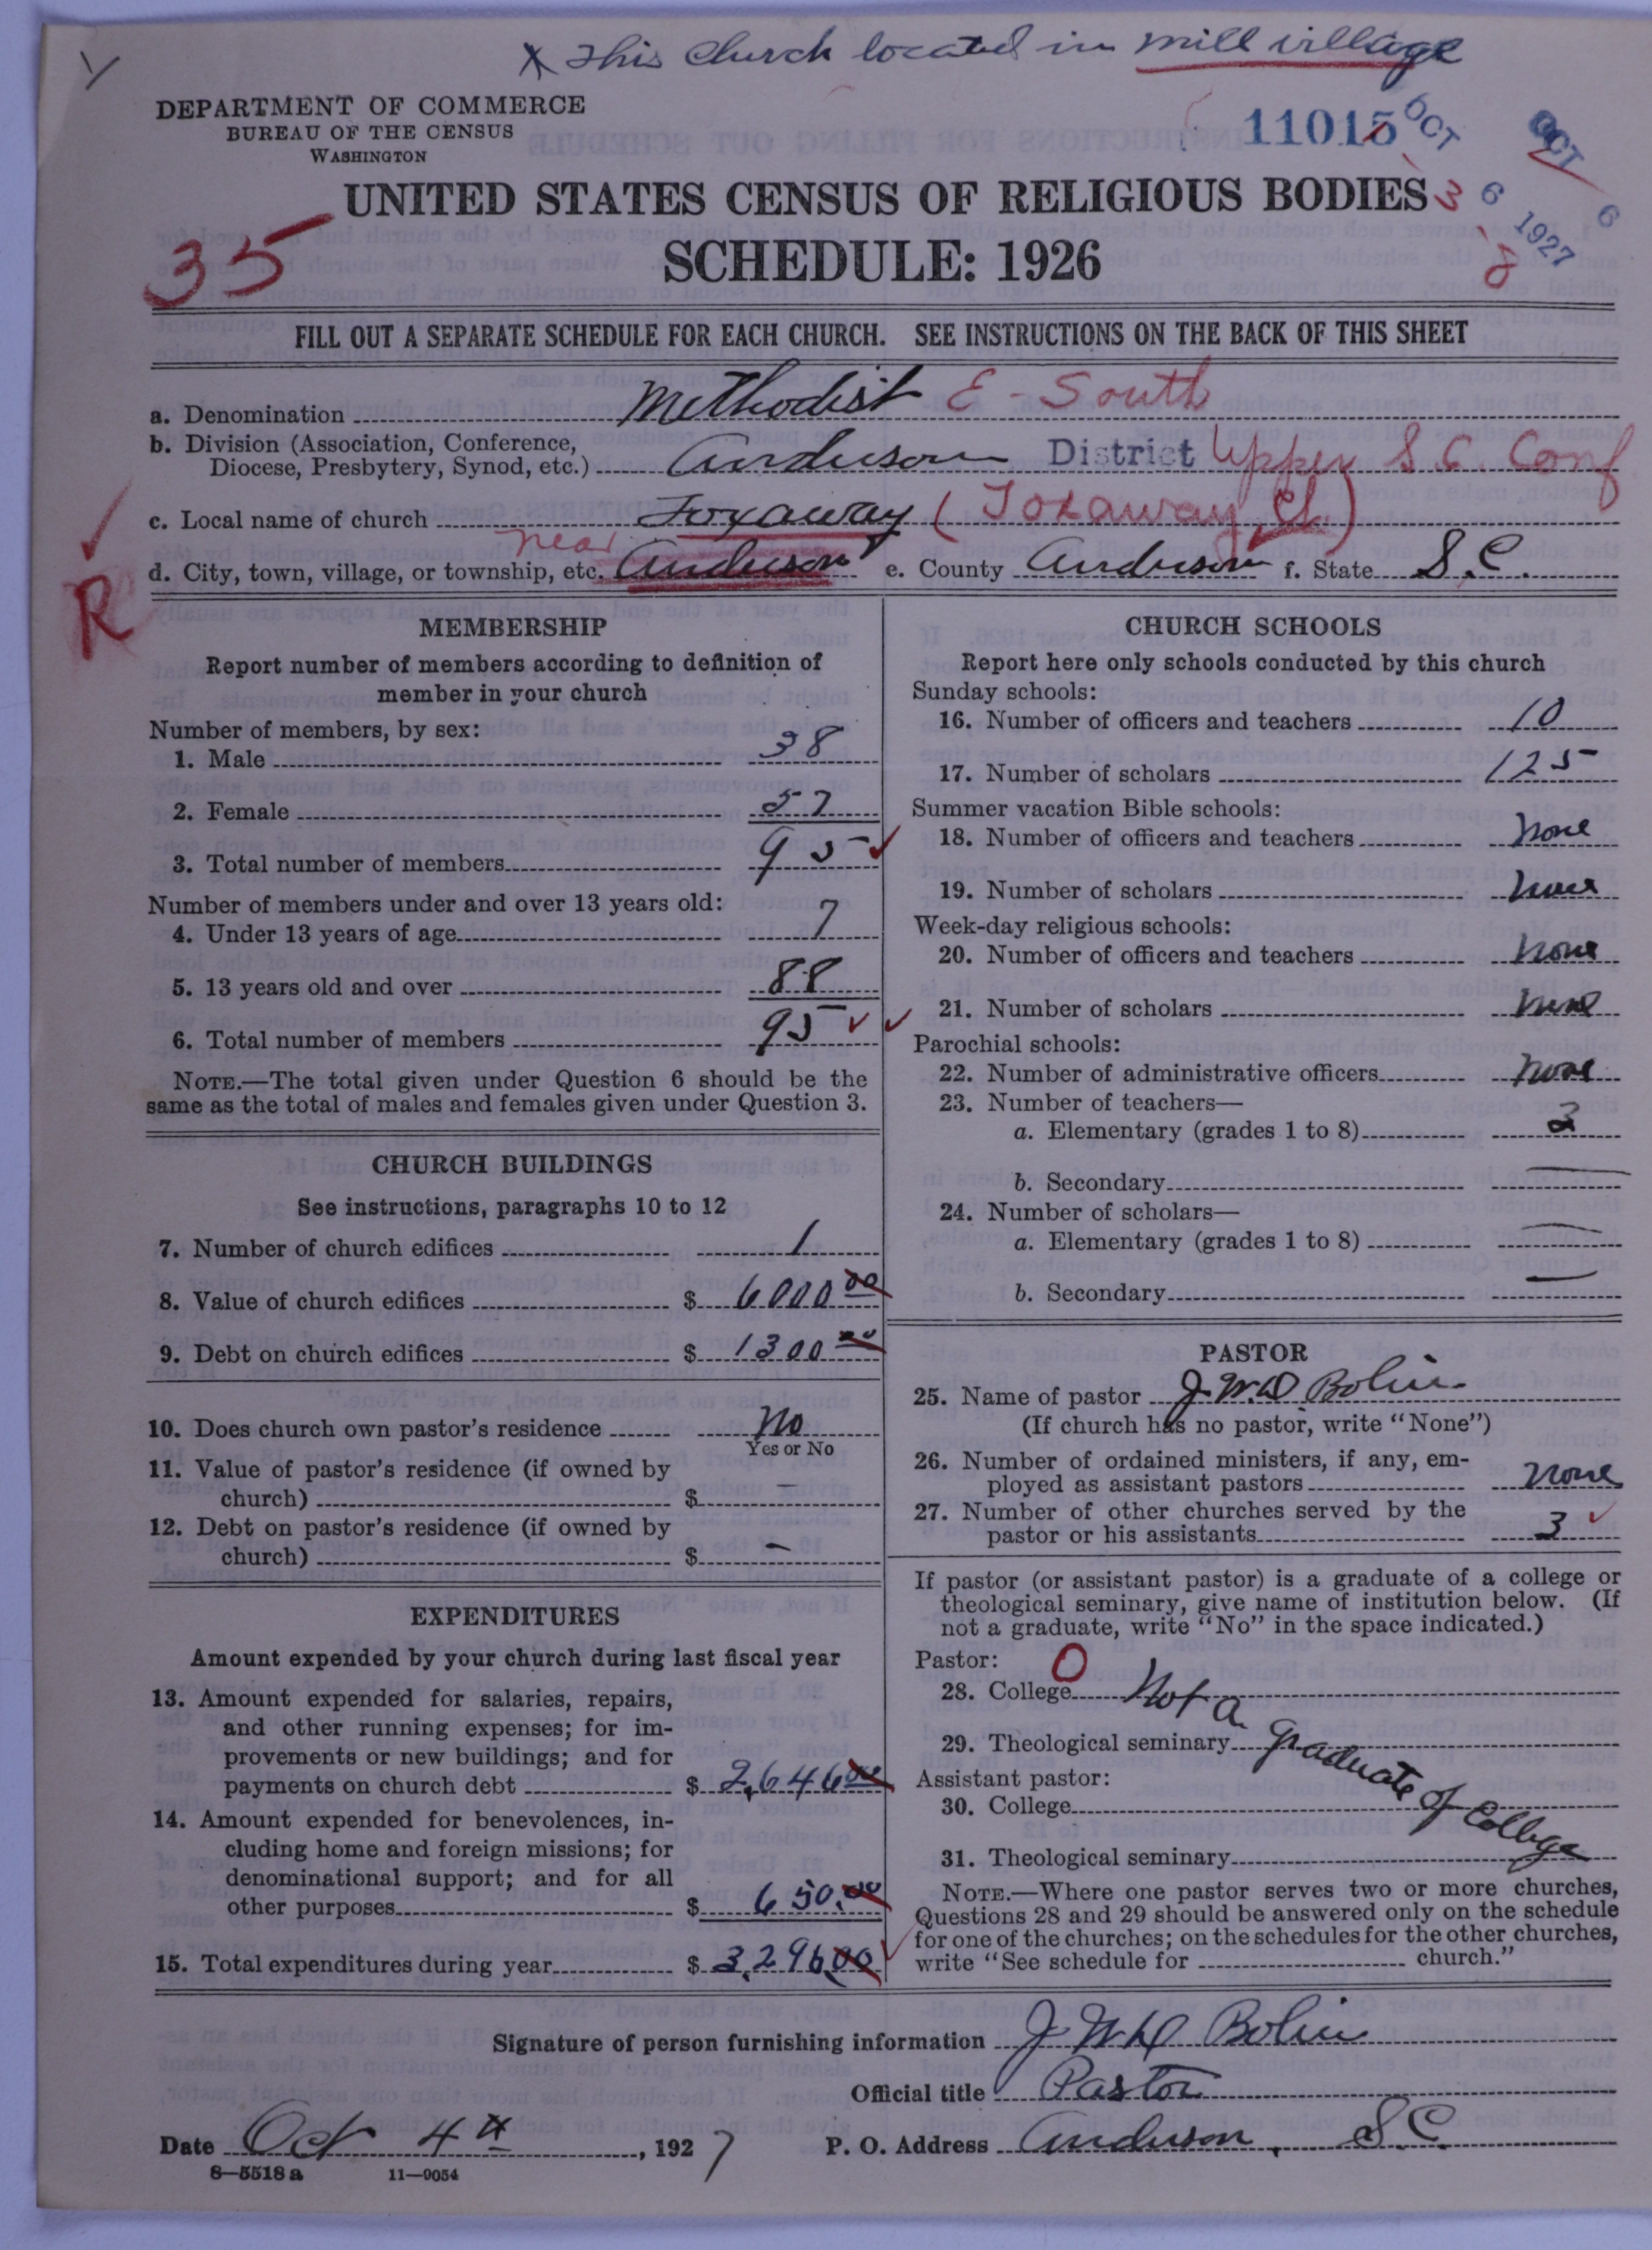 X This Church located in mill village
DEPARTMENT OF COMMERCE
BUREAU OF THE CENSUS
WASHINGTON
11015 OCT 6 1927
OCT 6
3-8
UNITED STATES CENSUS OF RELIGIOUS BODIES
SCHEDULE: 1926
35
FILL OUT A SEPARATE SCHEDULE FOR EACH CHURCH. SEE INSTRUCTIONS ON THE BACK OF THIS SHEET
a. Denomination Methodist E - South
b. Division (Association, Conference,
Diocese, Presbytery, Synod, etc.) Anderson District Upper S.C. Conf
c. Local name of church Toxaway (Toxaway Ch.)
d. City, town, village, or township, etc. near Anderson e. County Anderson f. State S.C.
R
MEMBERSHIP
Report number of members according to definition of
member in your church
Number of members, by sex:
1. Male 38
2. Female 57
3. Total number of members 95
Number of members under and over 13 years old:
4. Under 13 years of age 7
5. 13 years old and over 88
6. Total number of members 95
NOTE.—The total given under Question 6 should be the
same as the total of males and females given under Question 3.
CHURCH BUILDINGS
See instructions, paragraphs 10 to 12
7. Number of church edifices 1
8. Value of church edifices $ 6000 00
9. Debt on church edifices $ 1300 00
10. Does church own pastor's residence No
Yes or No
11. Value of pastor's residence (if owned by
church) $ -
12. Debt on pastor's residence (if owned by
church) $ -
EXPENDITURES
Amount expended by your church during last fiscal year
13. Amount expended for salaries, repairs,
and other running expenses; for im-
provements or new buildings; and for
payments on church debt $ 2,646 00
14. Amount expended for benevolences, in-
cluding home and foreign missions; for
denominational support; and for all
other purposes $ 650.00
15. Total expenditures during year $ 3,296.00
CHURCH SCHOOLS
Report here only schools conducted by this church
Sunday schools:
16. Number of officers and teachers 10
17. Number of scholars 125
Summer vacation Bible schools:
18. Number of officers and teachers None
19. Number of scholars None
Week-day religious schools:
20. Number of officers and teachers None
21. Number of scholars None
Parochial schools:
22. Number of administrative officers None
23. Number of teachers—
a. Elementary (grades 1 to 8) 3
b. Secondary —
24. Number of scholars—
a. Elementary (grades 1 to 8) —
b. Secondary —
PASTOR
25. Name of pastor J. W. D Bolin
(If church has no pastor, write "None")
26. Number of ordained ministers, if any, em-
ployed as assistant pastors None
27. Number of other churches served by the
pastor or his assistants 3
If pastor (or assistant pastor) is a graduate of a college or
theological seminary, give name of institution below. (If
not a graduate, write "No" in the space indicated.)
Pastor: O
28. College Not a graduate of College
29. Theological seminary
Assistant pastor:
30. College
31. Theological seminary
NOTE.—Where one pastor serves two or more churches,
Questions 28 and 29 should be answered only on the schedule
for one of the churches; on the schedules for the other churches,
write "See schedule for church."
Signature of person furnishing information J W D Bolin
Official title Pastor
Date Oct 4th, 1927 P. O. Address Anderson, S.C.
8—5518 a 11—9054